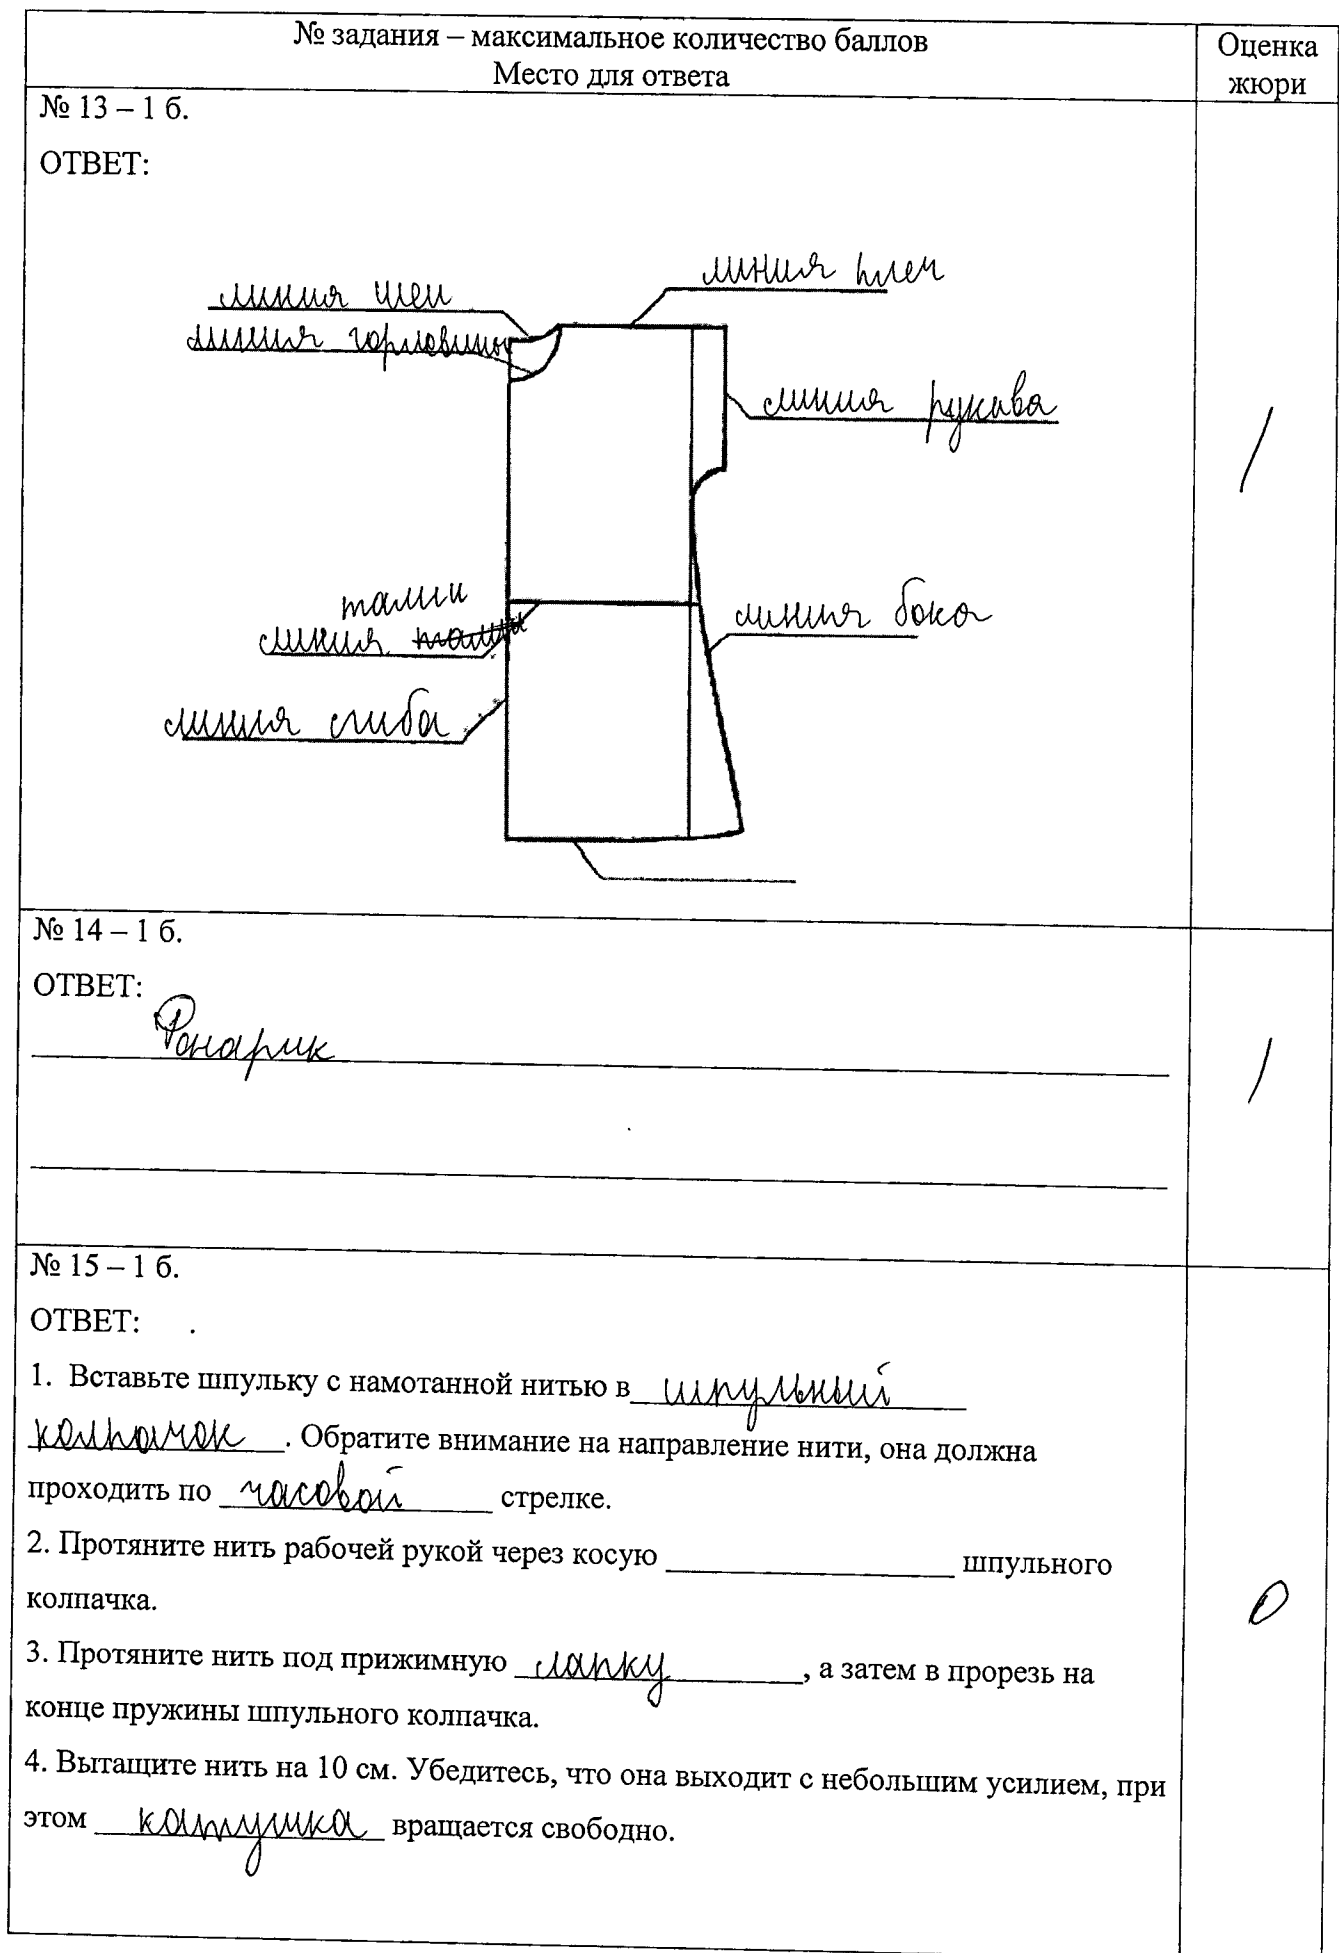 № задания – максимальное количество баллов
Место для ответа
Оценка
жюри
№ 13 – 1 б.
ОТВЕТ:
линия плеч
линия шеи
линия горловины
линия рукава
талии
линия талии
линия бока
линия сгиба
1
№ 14 – 1 б.
ОТВЕТ:
Фонарик
1
№ 15 – 1 б.
ОТВЕТ:
1. Вставьте шпульку с намотанной нитью в шпульный
колпачок. Обратите внимание на направление нити, она должна
проходить по часовой стрелке.
2. Протяните нить рабочей рукой через косую ____ шпульного
колпачка.
3. Протяните нить под прижимную лапку, а затем в прорезь на
конце пружины шпульного колпачка.
4. Вытащите нить на 10 см. Убедитесь, что она выходит с небольшим усилием, при
этом катушка вращается свободно.
0